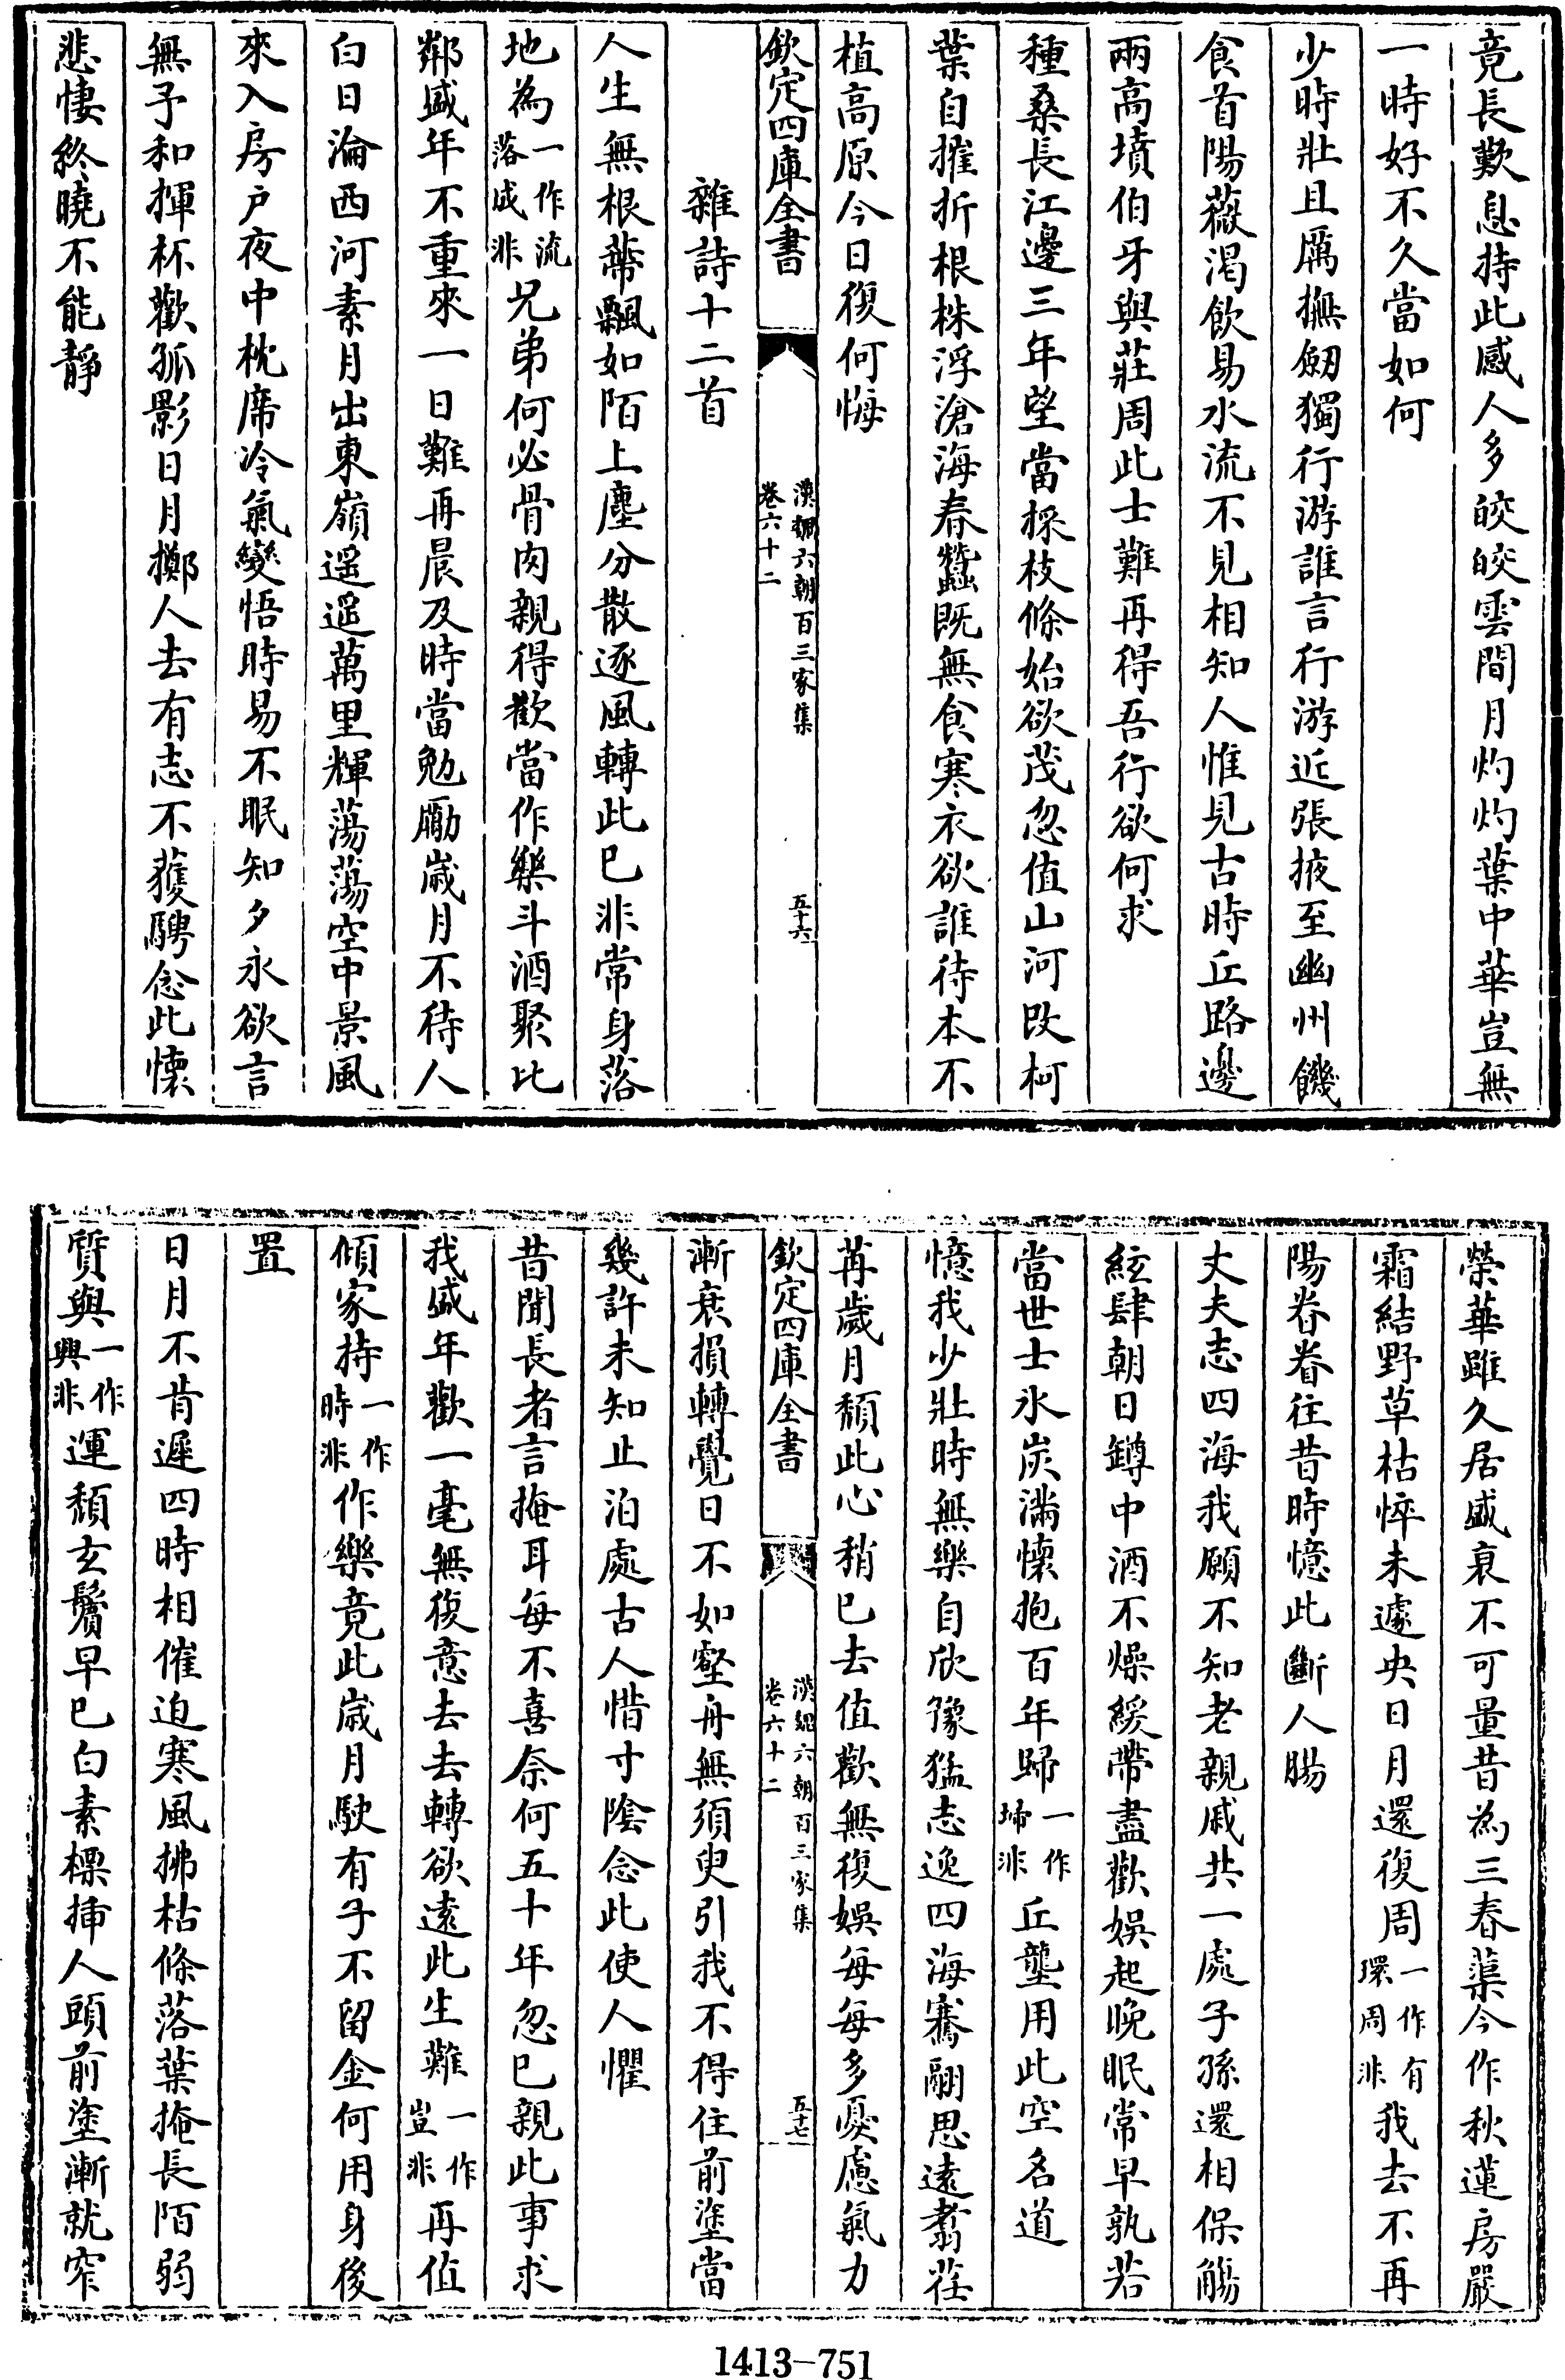 竟長歎息持此感人多皎皎雲間月灼灼葉中華豈無
一時好不久當如何
少時壯且厲撫劒獨行游誰言行游近張掖至幽州饑
食首陽薇渇飲易水流不見相知人惟見古時丘路邊
兩高墳伯牙與莊周此士難再得吾行欲何求
種桑長江邊三年望當採枝條始欲茂忽值山河改柯
葉自摧折根株浮滄海春蠶既無食寒衣欲誰待本不
植高原今日復何悔
欽定四庫全書
漢魏六朝百三家集
卷六十二
五十六
雜詩十二首
人生無根蔕飄如陌上塵分散逐風轉此已非常身落
地為一作流落成非兄弟何必骨肉親得歡當作樂斗酒聚比
鄰盛年不重來一日難再晨及時當勉勵歳月不待人
白日淪西河素月出東嶺遥遥萬里輝蕩蕩空中景風
來入房户夜中枕席冷氣變悟時易不眠知夕永欲言
無予和揮杯歡孤影日月擲人去有志不獲騁念此懷
悲悽終曉不能靜
榮華難久居盛衰不可量昔為三春蕖今作秋蓮房嚴
霜結野草枯悴未遽央日月還復周一作有環周非我去不再
陽眷眷往昔時憶此斷人腸
丈夫志四海我願不知老親戚共一處子孫還相保觴
絃肆朝日罇中酒不燥緩帶盡歡娛起晚眠常早孰若
當世士氷炭滿懷抱百年歸一作埽非丘壟用此空名道
憶我少壯時無樂自欣豫猛志逸四海騫翮思遠翥荏
苒歲月頹此心稍已去值歡無復娛每每多憂慮氣力
欽定四庫全書
漢魏六朝百三家集
卷六十二
五十七
漸衰損轉覺日不如壑舟無須臾引我不得住前塗當
幾許未知止泊處古人惜寸陰念此使人懼
昔聞長者言掩耳每不喜奈何五十年忽已親此事求
我盛年歡一毫無復意去去轉欲遠此生難一作豈非再值
傾家持一作時非作樂竟此歳月駛有子不留金何用身後
置
日月不肯遲四時相催迫寒風拂枯條落葉掩長陌弱
質與一作興非運頹玄鬢早已白素標揷人頭前塗漸就窄
1413-751